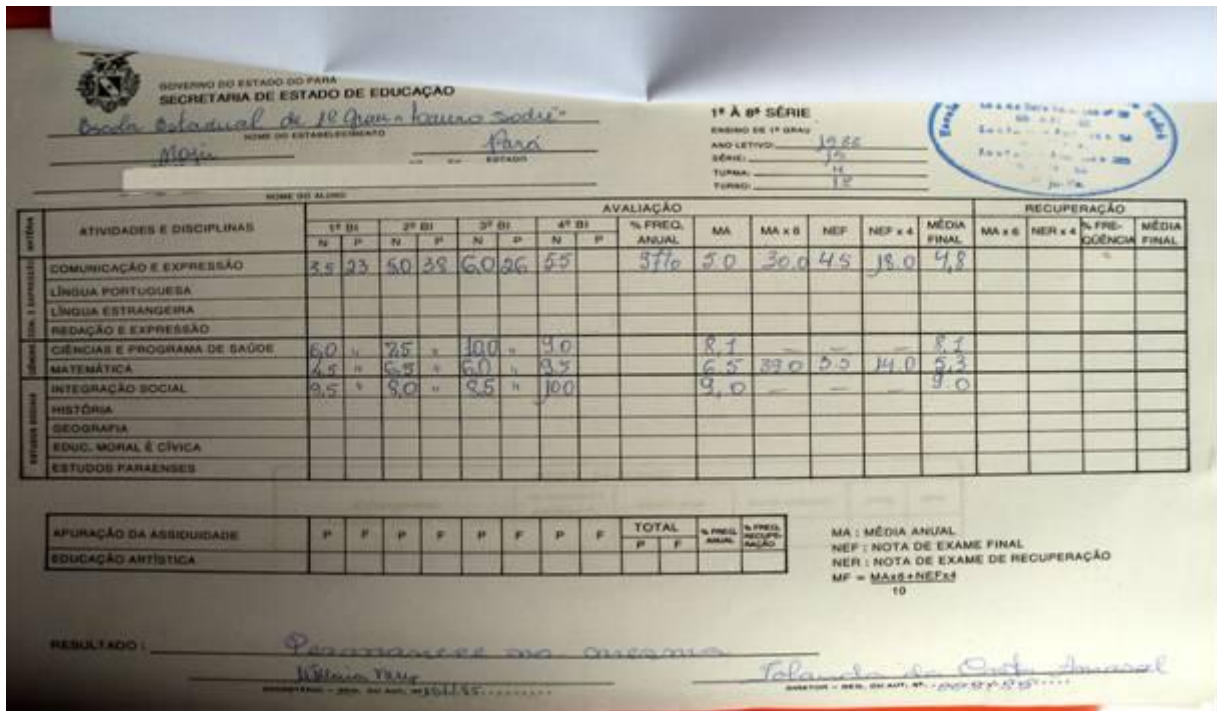 GOVERNO DO ESTADO DO PARÁ
SECRETARIA DE ESTADO DE EDUCAÇÃO
Escola Estadual de 1º Grau "Lauro Sodré"
NOME DO ESTABELECIMENTO
Moju Pará
ESTADO
NOME DO ALUNO
1ª À 8ª SÉRIE
ENSINO DE 1º GRAU
ANO LETIVO:
SÉRIE:
TURMA:
TURNO:
AVALIAÇÃO RECUPERAÇÃO
MATÉRIA ATIVIDADES E DISCIPLINAS 1º BI 2º BI 3º BI 4º BI % FREQ. ANUAL MA MA x 6 NEF NEF x 4 MÉDIA FINAL MA x 6 NER x 4 % FRE-QÜÊNCIA MÉDIA FINAL
N P N P N P N P
COMUNICAÇÃO E EXPRESSÃO 3.5 23 5.0 38 6.0 26 5.5 97% 5.0 30.0 4.5 18.0 4,8
LÍNGUA PORTUGUESA
LÍNGUA ESTRANGEIRA
REDAÇÃO E EXPRESSÃO
CIÊNCIAS E PROGRAMA DE SAÚDE 6,0 " 7,5 " 10,0 " 9.0 8,1 — — — 8,1
MATEMÁTICA 4,5 " 6,5 " 6,0 " 9.5 6.5 39.0 3.5 14.0 5,3
INTEGRAÇÃO SOCIAL 9,5 " 8,0 " 8,5 " 10.0 9,0 — — — 9.0
ESTUDOS SOCIAIS
HISTÓRIA
GEOGRAFIA
EDUC. MORAL E CÍVICA
ESTUDOS PARAENSES
APURAÇÃO DA ASSIDUIDADE P F P F P F P F TOTAL % FREQ. ANUAL % FREQ. RECUPE-RAÇÃO
P F
EDUCAÇÃO ARTÍSTICA
MA : MÉDIA ANUAL
NEF : NOTA DE EXAME FINAL
NER : NOTA DE EXAME DE RECUPERAÇÃO
MF = MAx6+NEFx4
10
RESULTADO : Permanece na mesma
Yolanda da Costa Amaral
SECRETÁRIO – REG. OU AUT. Nº
DIRETOR – REG. OU AUT. Nº